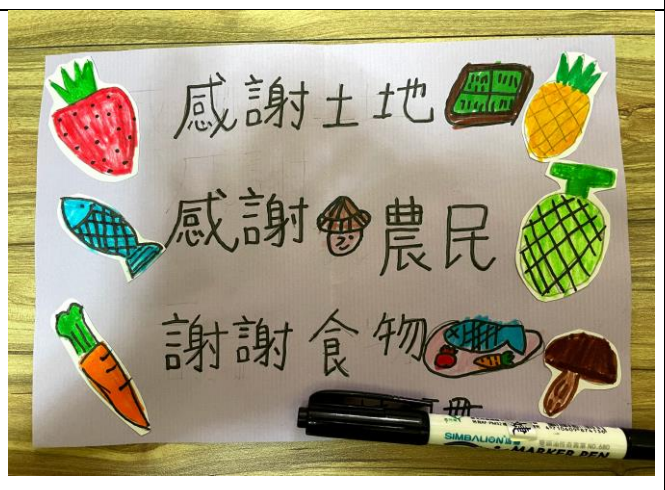 感謝土地
感謝農民
謝謝食物
SIMBALION
MARKER PEN